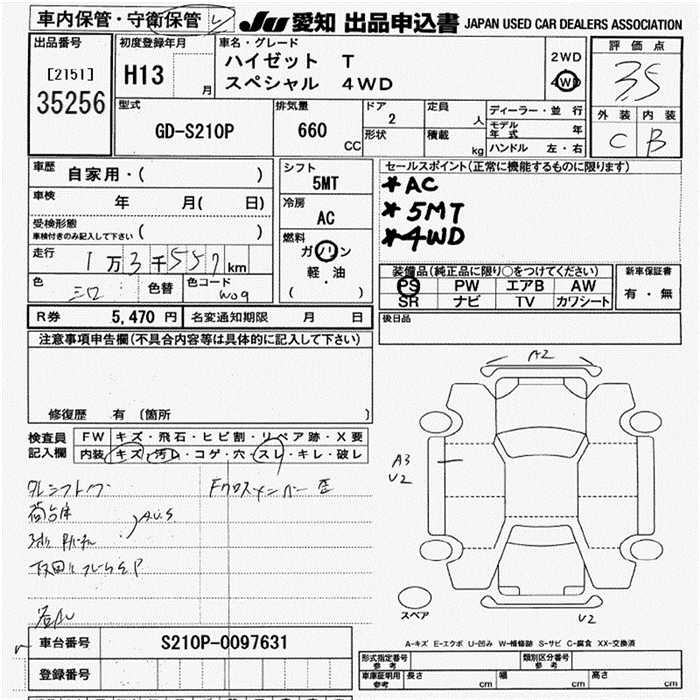 車内保管・守衛保管 レ
JU 愛知 出品申込書 JAPAN USED CAR DEALERS ASSOCIATION
出品番号
[2151]
35256
初度登録年月
H13 月
車名・グレード
ハイゼット T
スペシャル 4WD
2WD
4WD
評価点
3.5
外装 内装
C B
型式
GD-S210P
排気量
660 CC
ドア
2
形状
定員
人
積載
kg
ディーラー・並 行
モデル年式 年
ハンドル 左・右
車歴 自家用・( )
車検 年 月( 日)
受検形態
車検付きのみ記入して下さい ( )
走行 1万3千557km
色 色替 色コード
W09
シフト
5MT
冷房
AC
燃料
ガソリン
軽・油
( )
セールスポイント(正常に機能するものに限ります)
*AC
*5MT
*4WD
装備品(純正品に限り○をつけてください)
PS PW エアB AW
SR ナビ TV カワシート
新車保証書
有・無
後日品
R券 5,470 円 名変通知期限 月 日
注意事項申告欄(不具合内容等は具体的に記入して下さい)
修復歴 有 (箇所 )
検査員記入欄
FW キズ・飛石・ヒビ割・リペア跡・X要
内装 キズ・汚レ・コゲ・穴・スレ・キレ・破レ
荷台床
A.U.S
Fクロスメンバー歪
A2
A3
U2
スペア
U2
A-キズ E-エクボ U-凹み W-補修跡 S-サビ C-腐食 XX-交換済
車台番号 S210P-0097631
登録番号
形式指定番号
参考
類別区分番号
参考
車庫証明用
参考
長さ cm
幅 cm
高さ cm